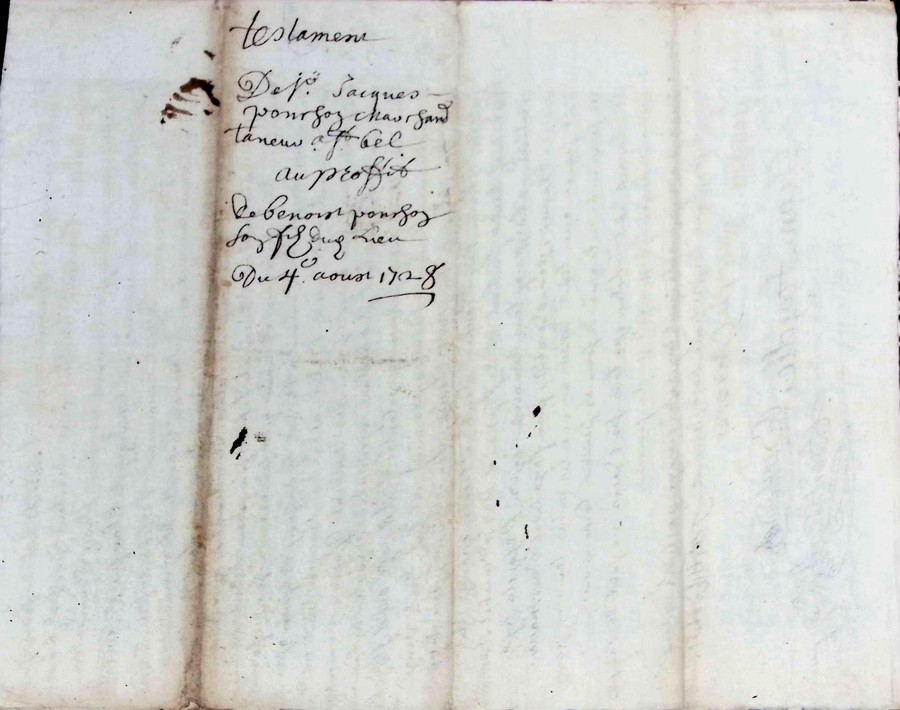 testament
De Sr. Jacques
ponchoz marchand
taneur a St bel
au proffit
de benoist ponchoz
soz filz dud lieu
Du 4e. aoust 1728